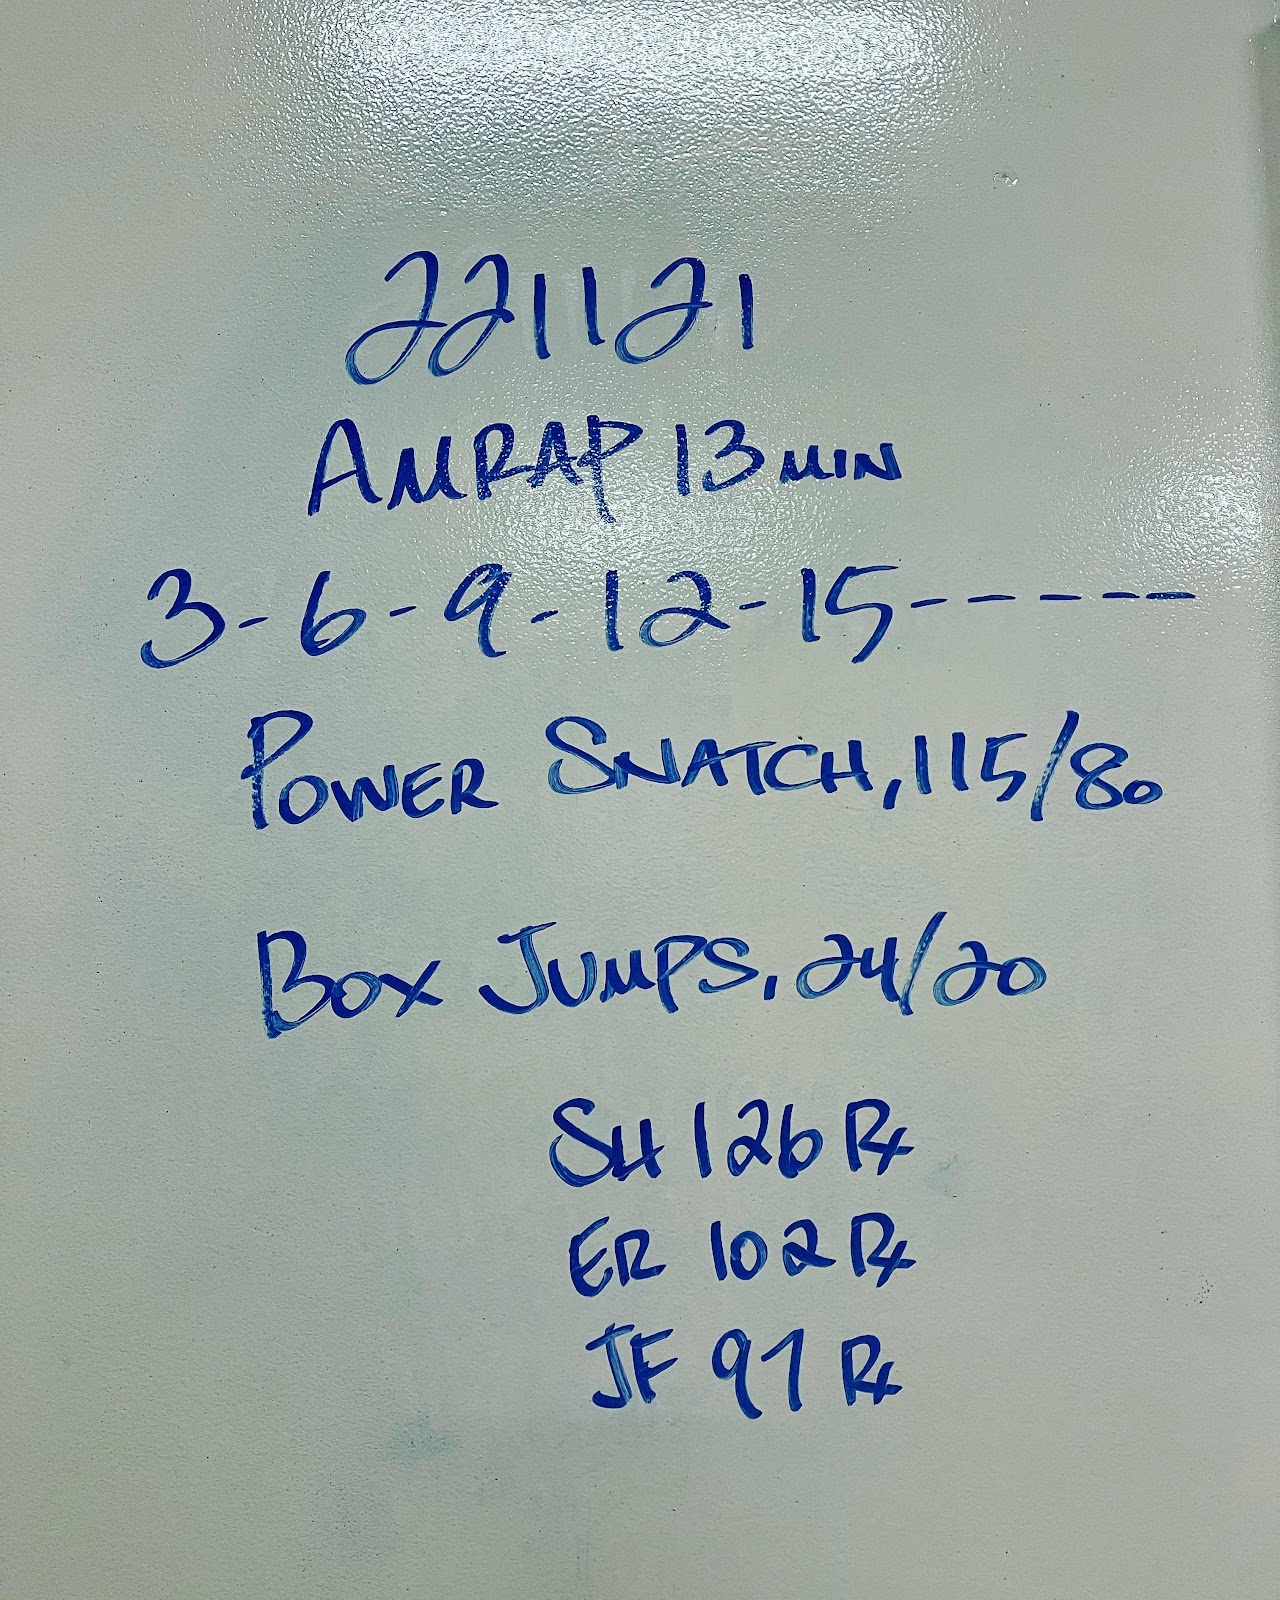 221121
AMRAP 13 MIN
3-6-9-12-15------
POWER SNATCH, 115/80
BOX JUMPS, 24/20
SH 126 Rx
ER 102 Rx
JF 97 Rx